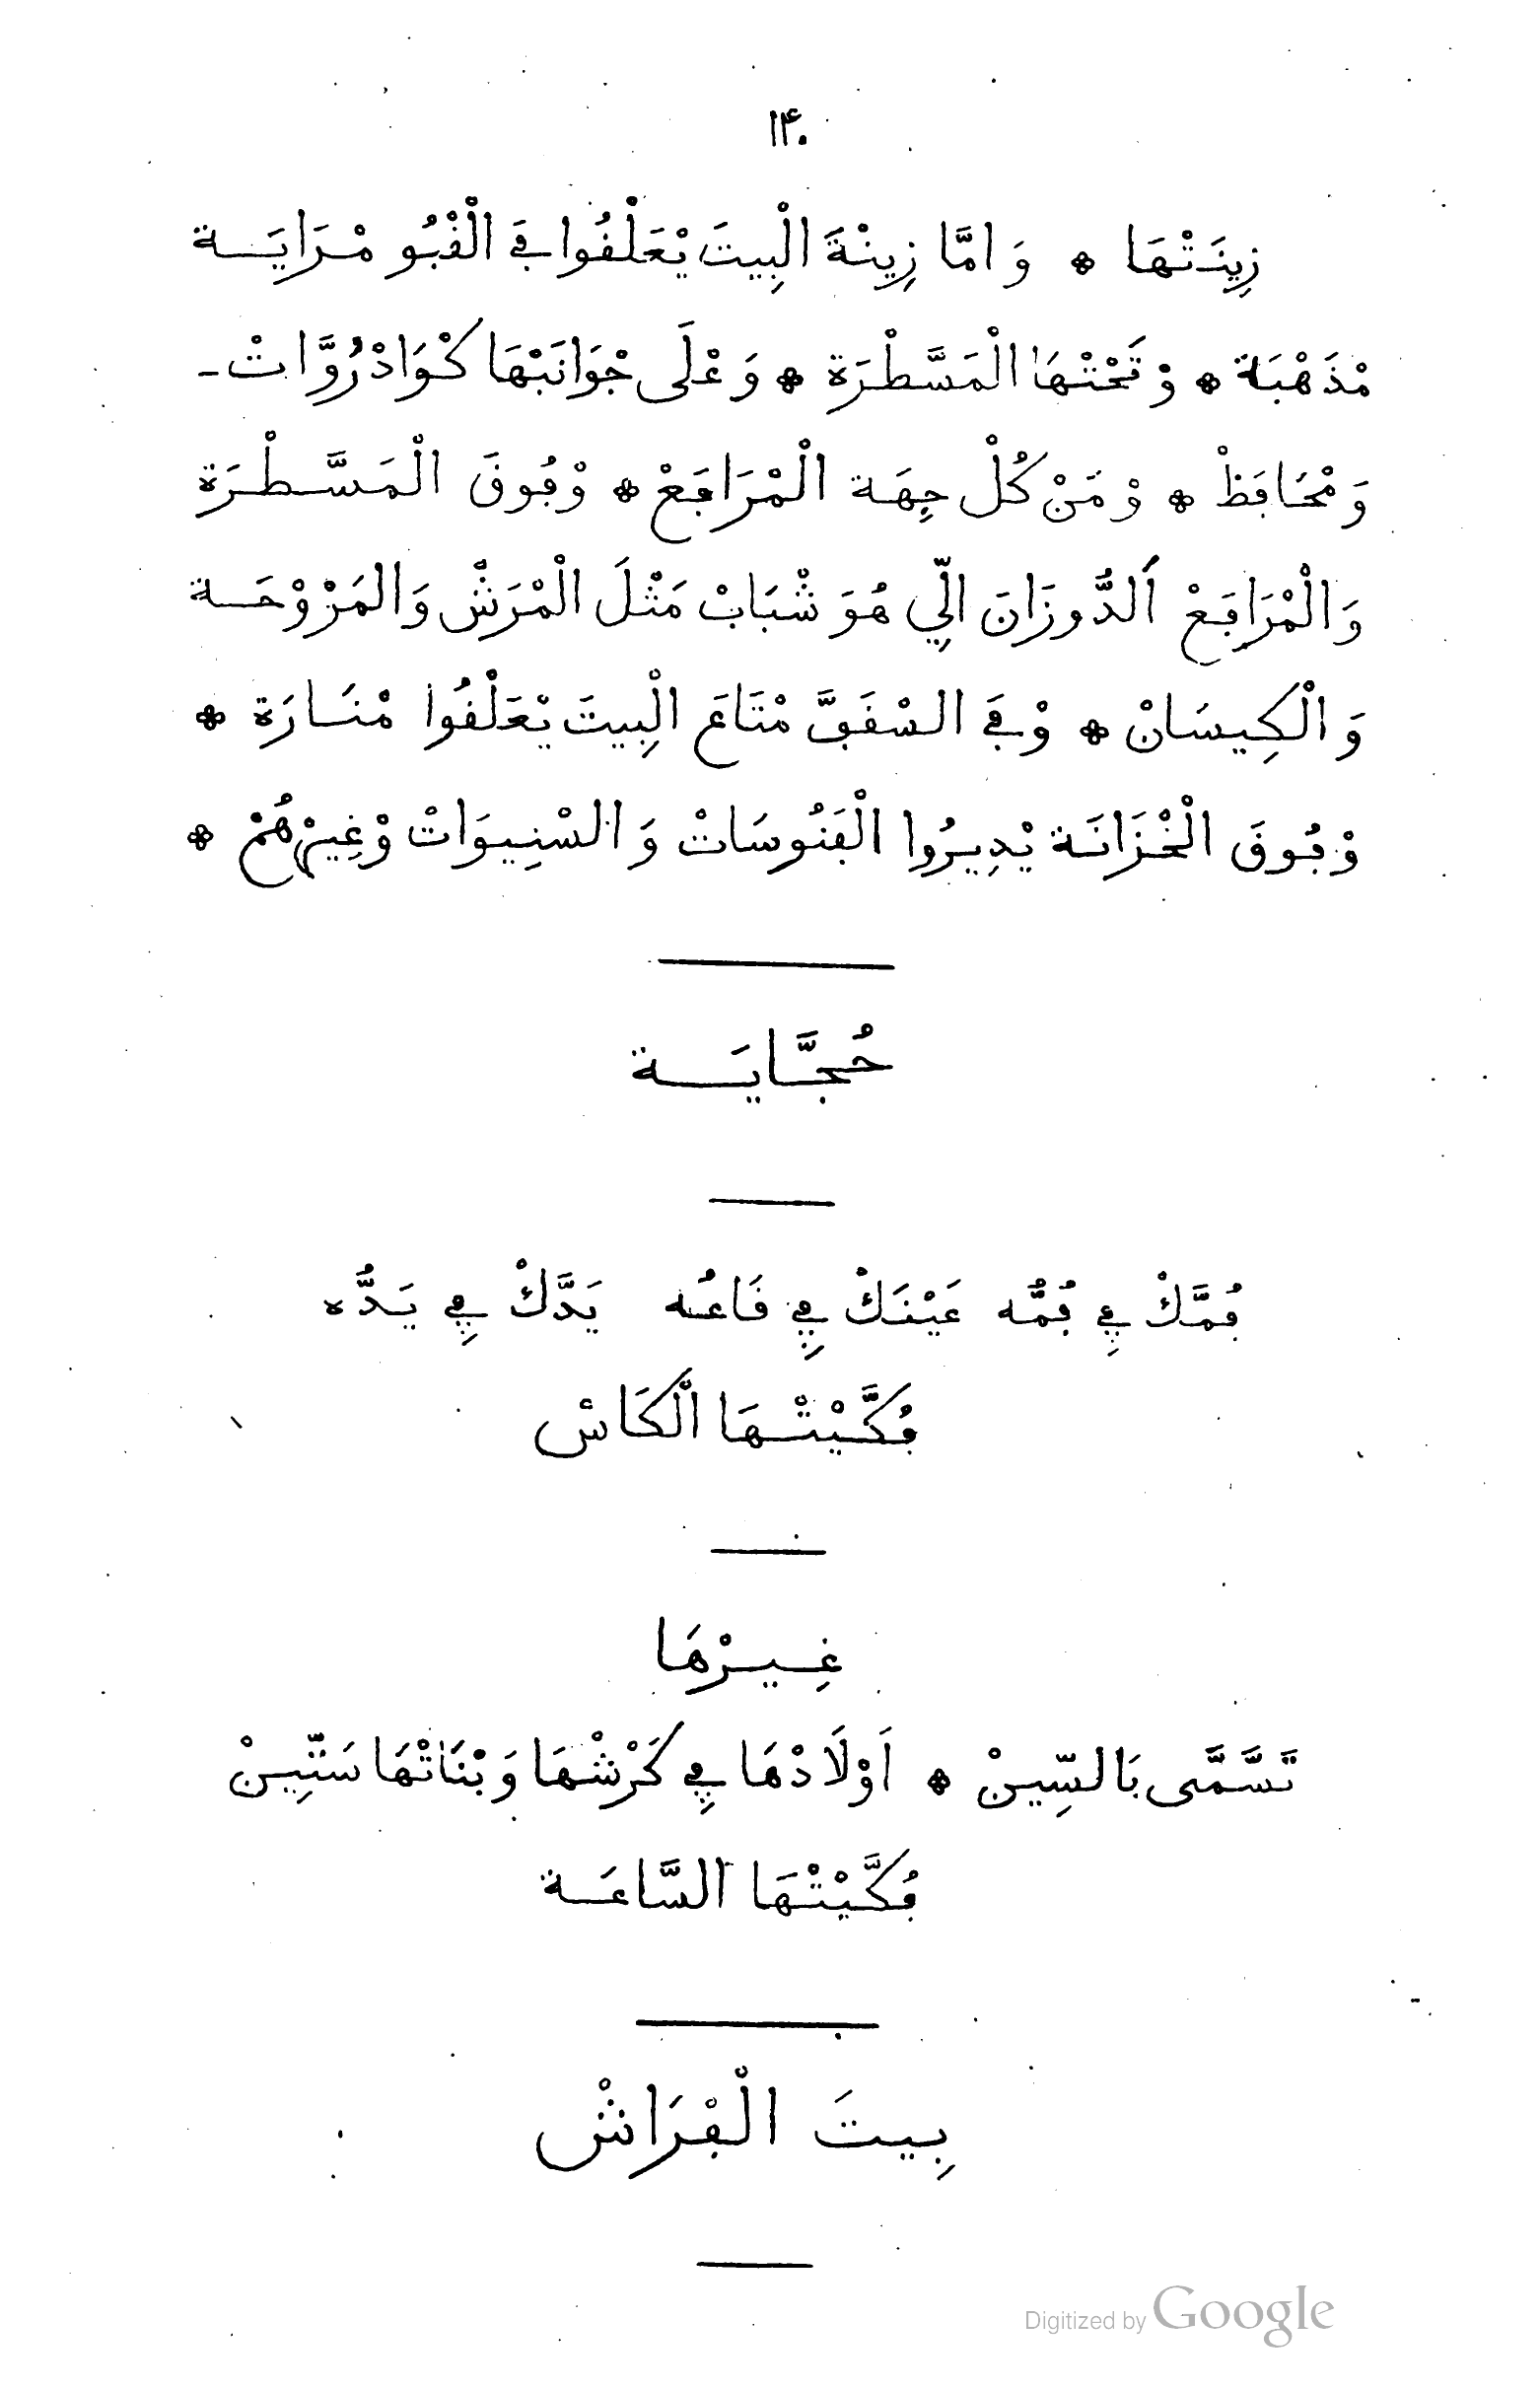 ۱۴۰
زِينَتْهَا * وَامَّا زِينْةَ الْبِيتَ يْعَلْقُوا فَي الْقْبُو مْرَايَة
مْذَهْبَة * وْتَحْتْهَا الْمَسَّطْرَة * وَعْلَى جْوَانَبْهَا كْوَادْرُوَّاتْ-
وَمْحَافَظْ * وْمَنْ كُلْ جِهَة الْمْرَافَعْ * وْفُوقَ الْمَسَّطْرَة
وَالْمْرَافَعْ اَلدُّوزَانَ الِّي هُوَ شْبَابْ مَثْلَ الْمْرَشّْ وَالمَرْوْحَة
وَالْكِيسَانْ * وْفَي السْقَفَّ مْتَاعَ الْبِيتَ يْعَلْقُوا مْنَارَة *
وْفُوقَ الْخْزَانَة يْدِيرُوا الْفَنُوسَاتْ وَالسْنِيوَاتْ وْغِيرْهُمْ *
حُجَّايَة
فُمَّكْ فِي فُمُّه عَيْنَكْ فِي قَاعُه يَدَّكْ فِي يَدُّه
فُكَّيْتْهَا الْكَاسْ
غِيرْهَا
تَسَّمَّى بَالسِّينْ * اَوْلَادْهَا فِي كَرْشْهَا وَبْنَاتْهَا سَتِّينْ
فُكَّيْتْهَا السَّاعَة
بِيتَ الْفْرَاشْ
Digitized by Google